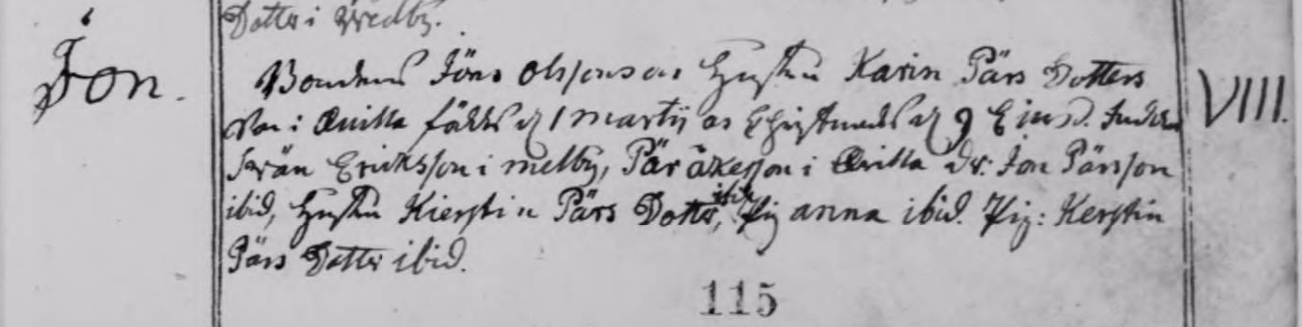 Dotter i Wedby.
Jon.
Bondens Jöns Olssons och Hustru Karin Pärs Dotters
Son i Quilla föddes d 1 Martij och Christnades d 9 Ejusd.
Swän Ericksson i Melby, Pär åkesson i Qvilla Dr: Jon Pärsson
ibid, Hustru Kierstin Pärs Dotter, ibid Pig anna ibid. Pig: Kerstin
Pärs Dotter ibid.
VIII.
115